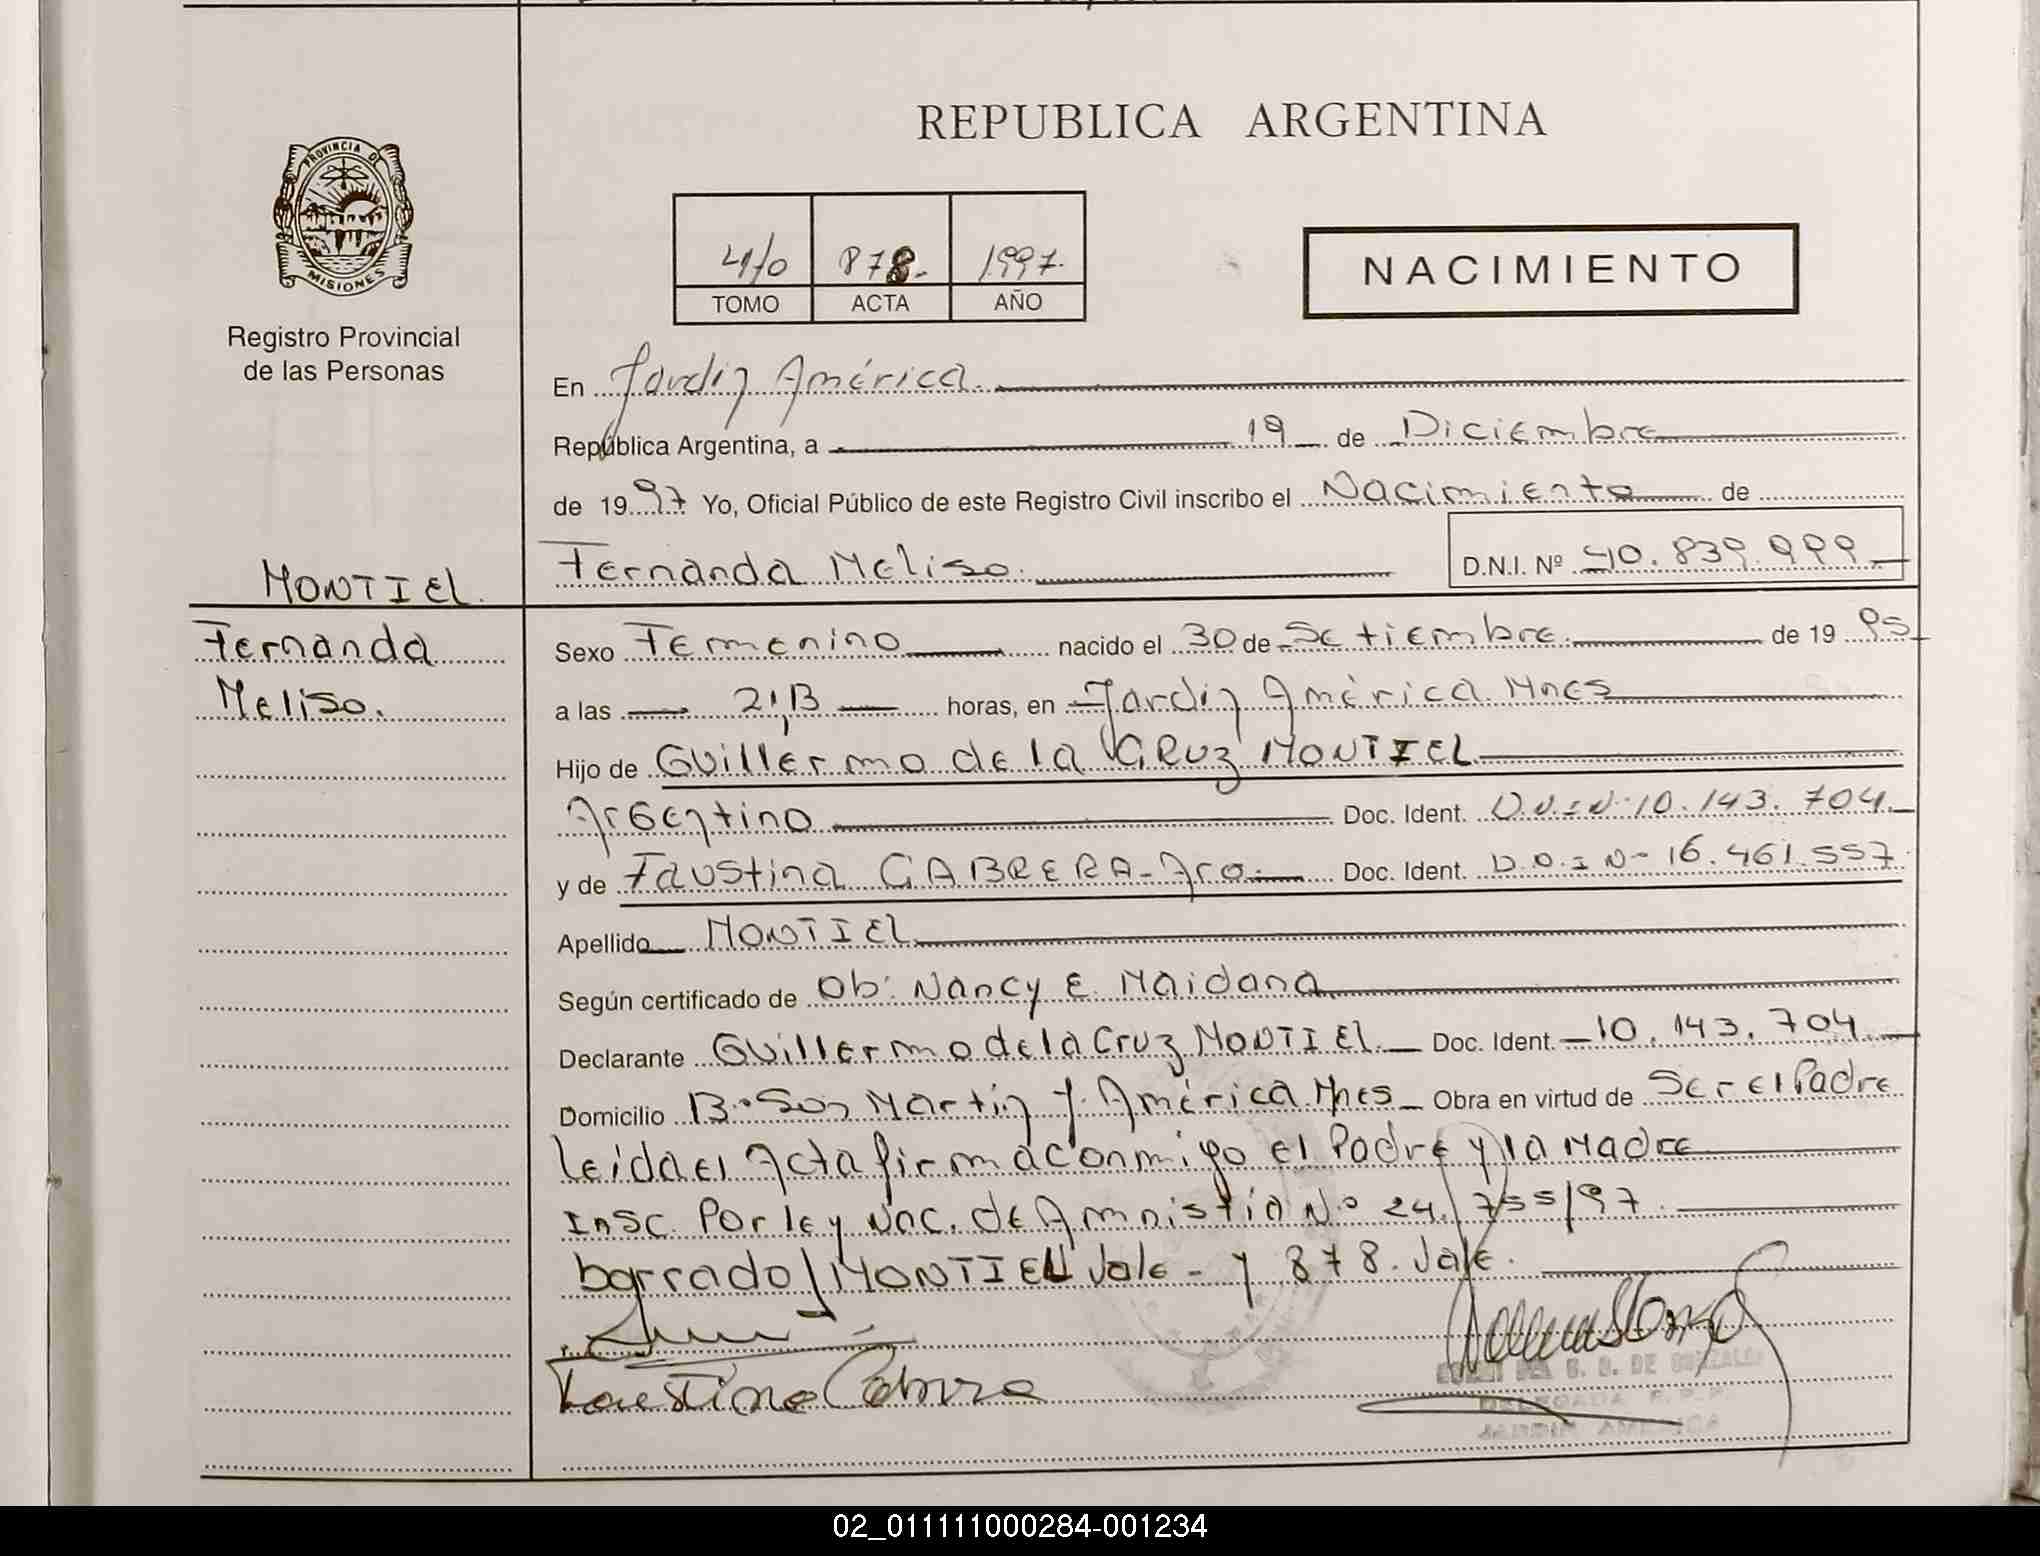 REPUBLICA ARGENTINA
PROVINCIA DE
MISIONES
Registro Provincial
de las Personas
4/0 878. 1997.
TOMO ACTA AÑO
NACIMIENTO
En Jardín América.
República Argentina, a 19 de Diciembre
de 1997 Yo, Oficial Público de este Registro Civil inscribo el Nacimiento de
Fernanda Melisa. D.N.I. Nº 40.839.999
MONTIEL.
Fernanda
Melisa.
Sexo Femenino nacido el 30 de Setiembre. de 1995
a las 21,13 horas, en Jardín América. Mnes
Hijo de Guillermo de la CRUZ MONTIEL
Argentino Doc. Ident. D.N.I N· 10.143.704.
y de Faustina CABRERA-Arg. Doc. Ident. D.N.I N- 16.461.557
Apellido MONTIEL
Según certificado de Ob: Nancy E. Maidana
Declarante Guillermo de la Cruz MONTIEL. Doc. Ident. 10.143.704
Domicilio B· San Martín J. América. Mnes Obra en virtud de Ser el Padre
leida el Acta firma conmigo el Padre y la Madre
Insc. Por ley Nac. de Amnistia Nº 24.755/97
borrado/MONTIEL Vale - y 878. Vale.
Faustina Cabrera
DE GONZALEZ
DELEGADA R.P.P.
JARDIN AMERICA
02_011111000284-001234